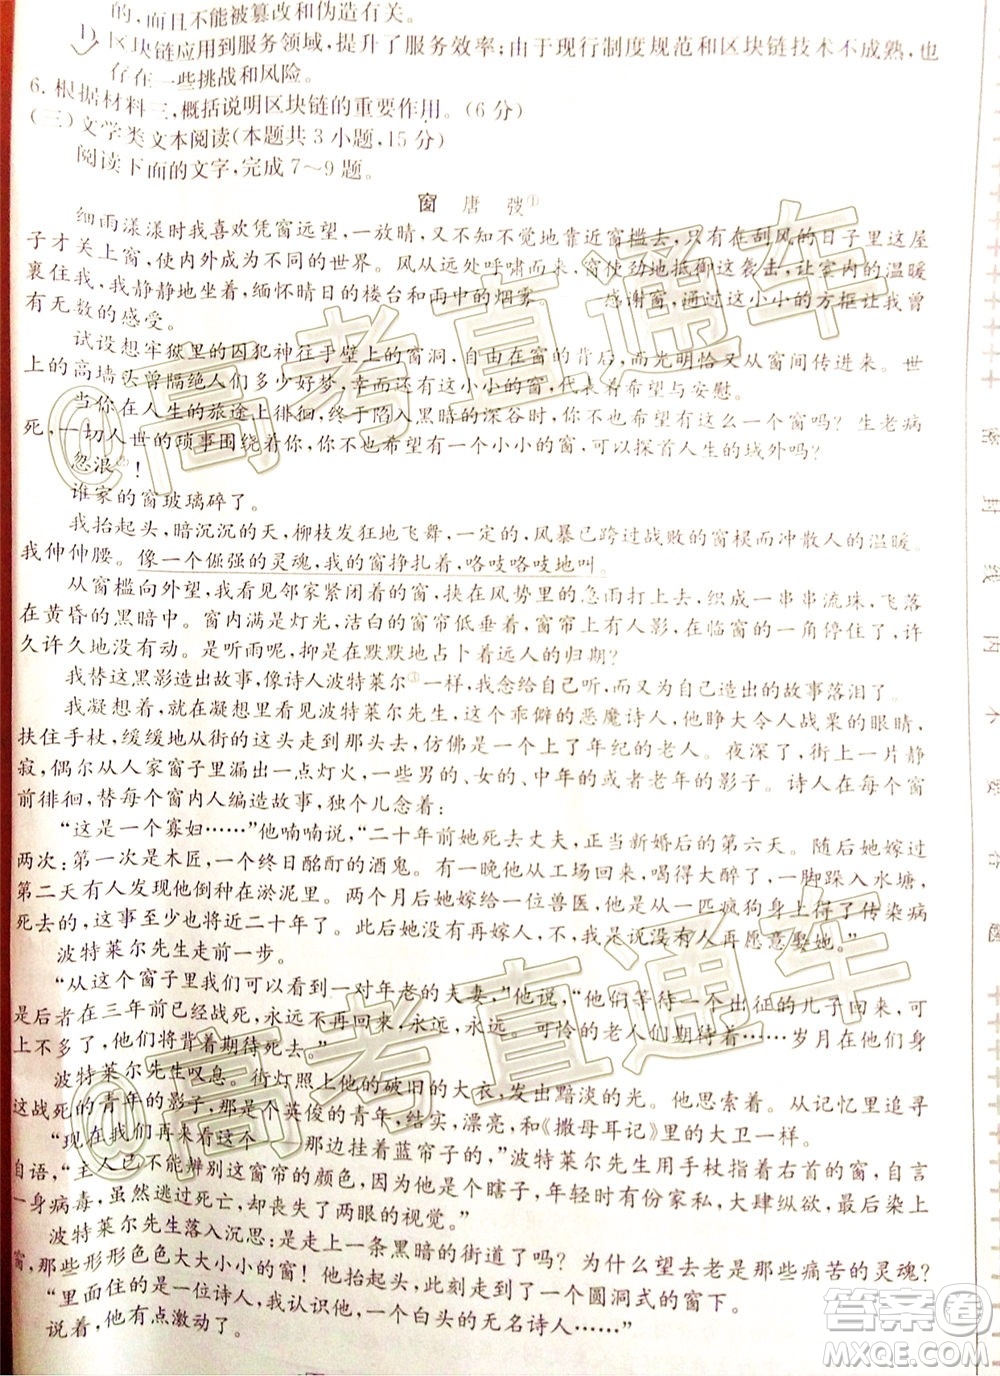 的,而且不能被篡改和伪造有关。
D. 区块链应用到服务领域,提升了服务效率;由于现行制度规范和区块链技术不成熟,也
存在一些挑战和风险。
6. 根据材料三,概括说明区块链的重要作用。(6分)
(三)文学类文本阅读(本题共3小题,15分)
阅读下面的文字,完成7~9题。
窗 唐 弢①
细雨漾漾时我喜欢凭窗远望,一放晴,又不知不觉地靠近窗槛去,只有在刮风的日子里这屋
子才关上窗,使内外成为不同的世界。风从远处呼啸而来,窗使劲地抵御这袭击,让室内的温暖
裹住我,我静静地坐着,缅怀晴日的楼台和雨中的烟雾。 感谢窗,通过这小小的方框让我曾
有无数的感受。
试设想牢狱里的囚犯神往于壁上的窗洞,自由在窗的背后,而光明恰又从窗间传进来。世
上的高墙头曾隔绝人们多少好梦,幸而还有这小小的窗,代表着希望与安慰。
当你在人生的旅途上徘徊,终于陷入黑暗的深谷时,你不也希望有这么一个窗吗?生老病
死,一切人世的琐事围绕着你,你不也希望有一个小小的窗,可以探首人生的域外吗?
忽浪②!
谁家的窗玻璃碎了。
我抬起头,暗沉沉的天,柳枝发狂地飞舞,一定的,风暴已跨过战败的窗棂而冲散人的温暖。
我伸伸腰。像一个倔强的灵魂,我的窗挣扎着,咯吱咯吱地叫。
从窗槛向外望,我看见邻家紧闭着的窗,挟在风势里的急雨打上去,变成一串串流珠,飞落
在黄昏的黑暗中。窗内满是灯光,洁白的窗帘低垂着,窗帘上有人影,在临窗的一角停住了,许
久许久地没有动。是听雨呢,抑是在默默地卜着远人的归期?
我替这黑影造出故事,像诗人波特莱尔③一样,我念给自己听,而又为这造出的故事落泪了。
我凝想着,就在凝想里看见波特莱尔先生,这个乖僻的恶魔诗人,他睁大令人战栗的眼睛,
扶住手杖,缓缓地从街的这头走到那头,仿佛是一个上了年纪的老人。夜深了,街上一片静
寂,偶尔从人家窗子里漏出一点灯火,一些男的、女的、中年的或者老年的影子。诗人在每个窗
前徘徊,替每个窗内人编造故事,独个儿念着:
“这是一个寡妇……”他喃喃说,“二十年前她死去丈夫,正当新婚后的第六天。以后她嫁过
两次:第一次是木匠,一个终日酩酊的酒鬼。有一晚,他从工场回来,喝得大醉了,一脚踩入水塘,
第二天有人发现他倒种在淤泥里。两个月后她嫁给一兽医,他是从一匹疯狗身上得了传染病
死去的,这事至少也将近二十年了。此后她不再嫁人,不,我是说没有人再愿意娶她。”
波特莱尔先生走前一步。
“从这个窗子里我们可以看到一对年老的夫妻,”他说,“他们等待一个出征的儿子回来,可
是后者在三年前已经战死,永远不再回来,永远,永远。可怜的老人们期待着……岁月在他们身
上不多了,他们将背着期待死去。”
波特莱尔先生叹息。街灯照上他的破旧的大衣,发出黯淡的光。他思索着。从记忆里追寻
这战死的青年的影子,那是个英俊的青年,结实,漂亮,和《撒母耳记》里的大卫一样。
“现在我们再来看这个……那边挂着蓝帘子的窗,”波特莱尔先生用手杖指着右首的窗,自言
自语,“主人已不能辨别这窗帘的颜色,因为他是个瞎子,年轻时有份家私,大肆纵欲,最后染上
一身病毒,虽然逃过死亡,却丧失了两眼的视觉。”
波特莱尔先生落入沉思:是走上一条黑暗的街道了吗?为什么望去老是那些痛苦的灵魂?
窗,那些形形色色大大小小的窗!他抬起头,此刻走到了一个圆洞式的窗下。
“里面住的是一位诗人,我认识他,一个白头的无名诗人……”
说着,他有点激动了。
密封线内不要答题
@高考直通车
@高考直通车
答案圈
MXQE.COM